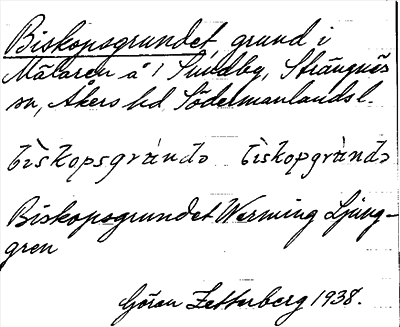 Biskopsgrundet, grund i
Mälaren å 1 Sundby, Strängnäs
sn, Åkers hd Södermanlands l.
bìskopsgrúndə bìskopgrúndə
Biskopsgrundet Warming Ljung-
gren
Göran Zetterberg 1938.